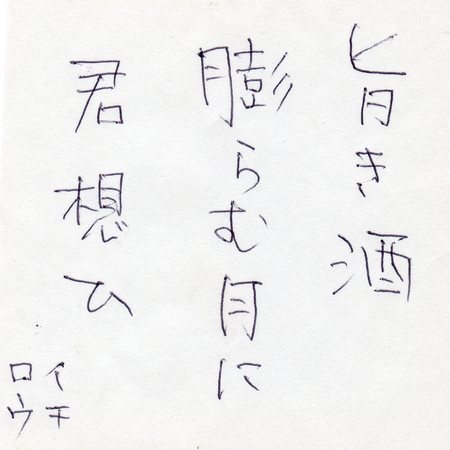 旨き酒
膨らむ月に
君想ひ
イチ
ロウ